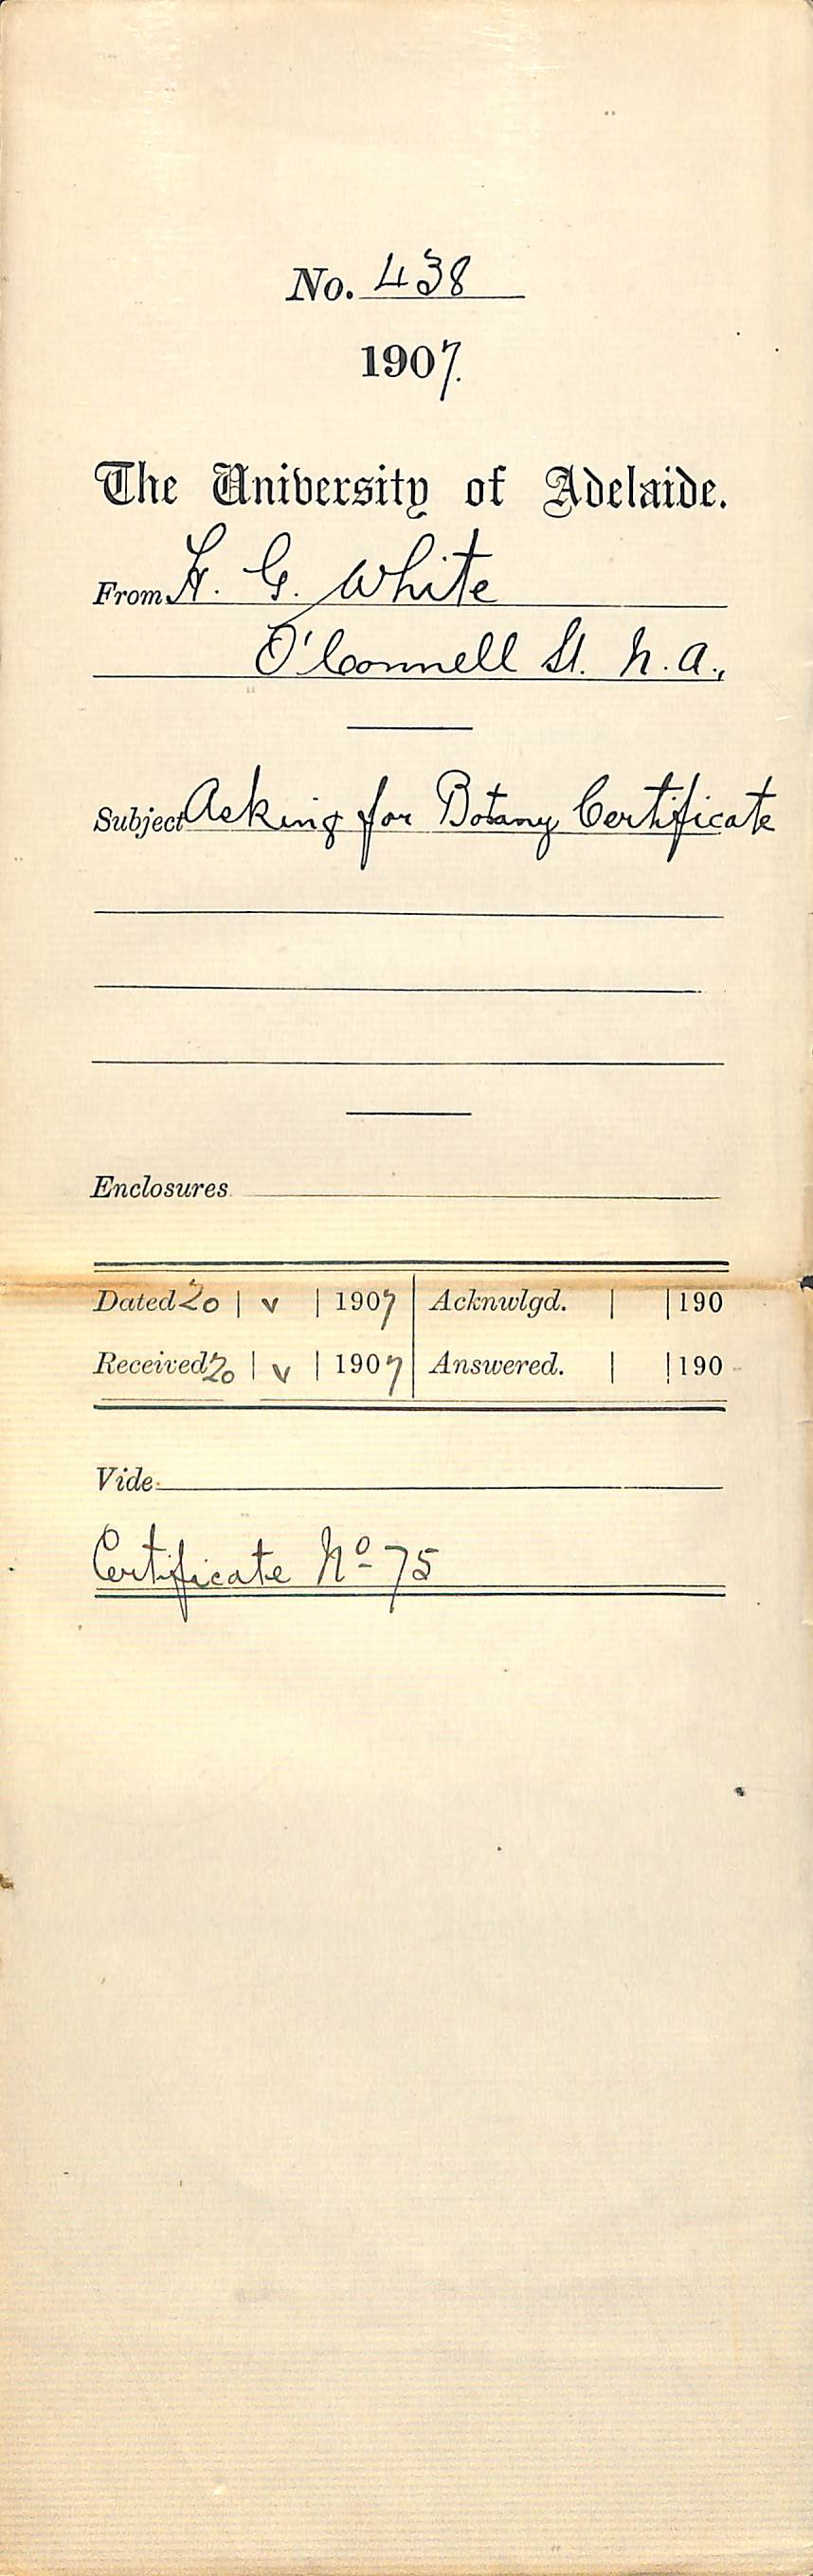 No. 438
1907.
The University of Adelaide.
From H. G. White
O'Connell St. N.A.,
Subject Asking for Botany Certificate
Enclosures
Dated 20 | v | 1907 Acknwlgd. | | 190
Received 20 | v | 1907 Answered. | | 190
Vide
Certificate No 75